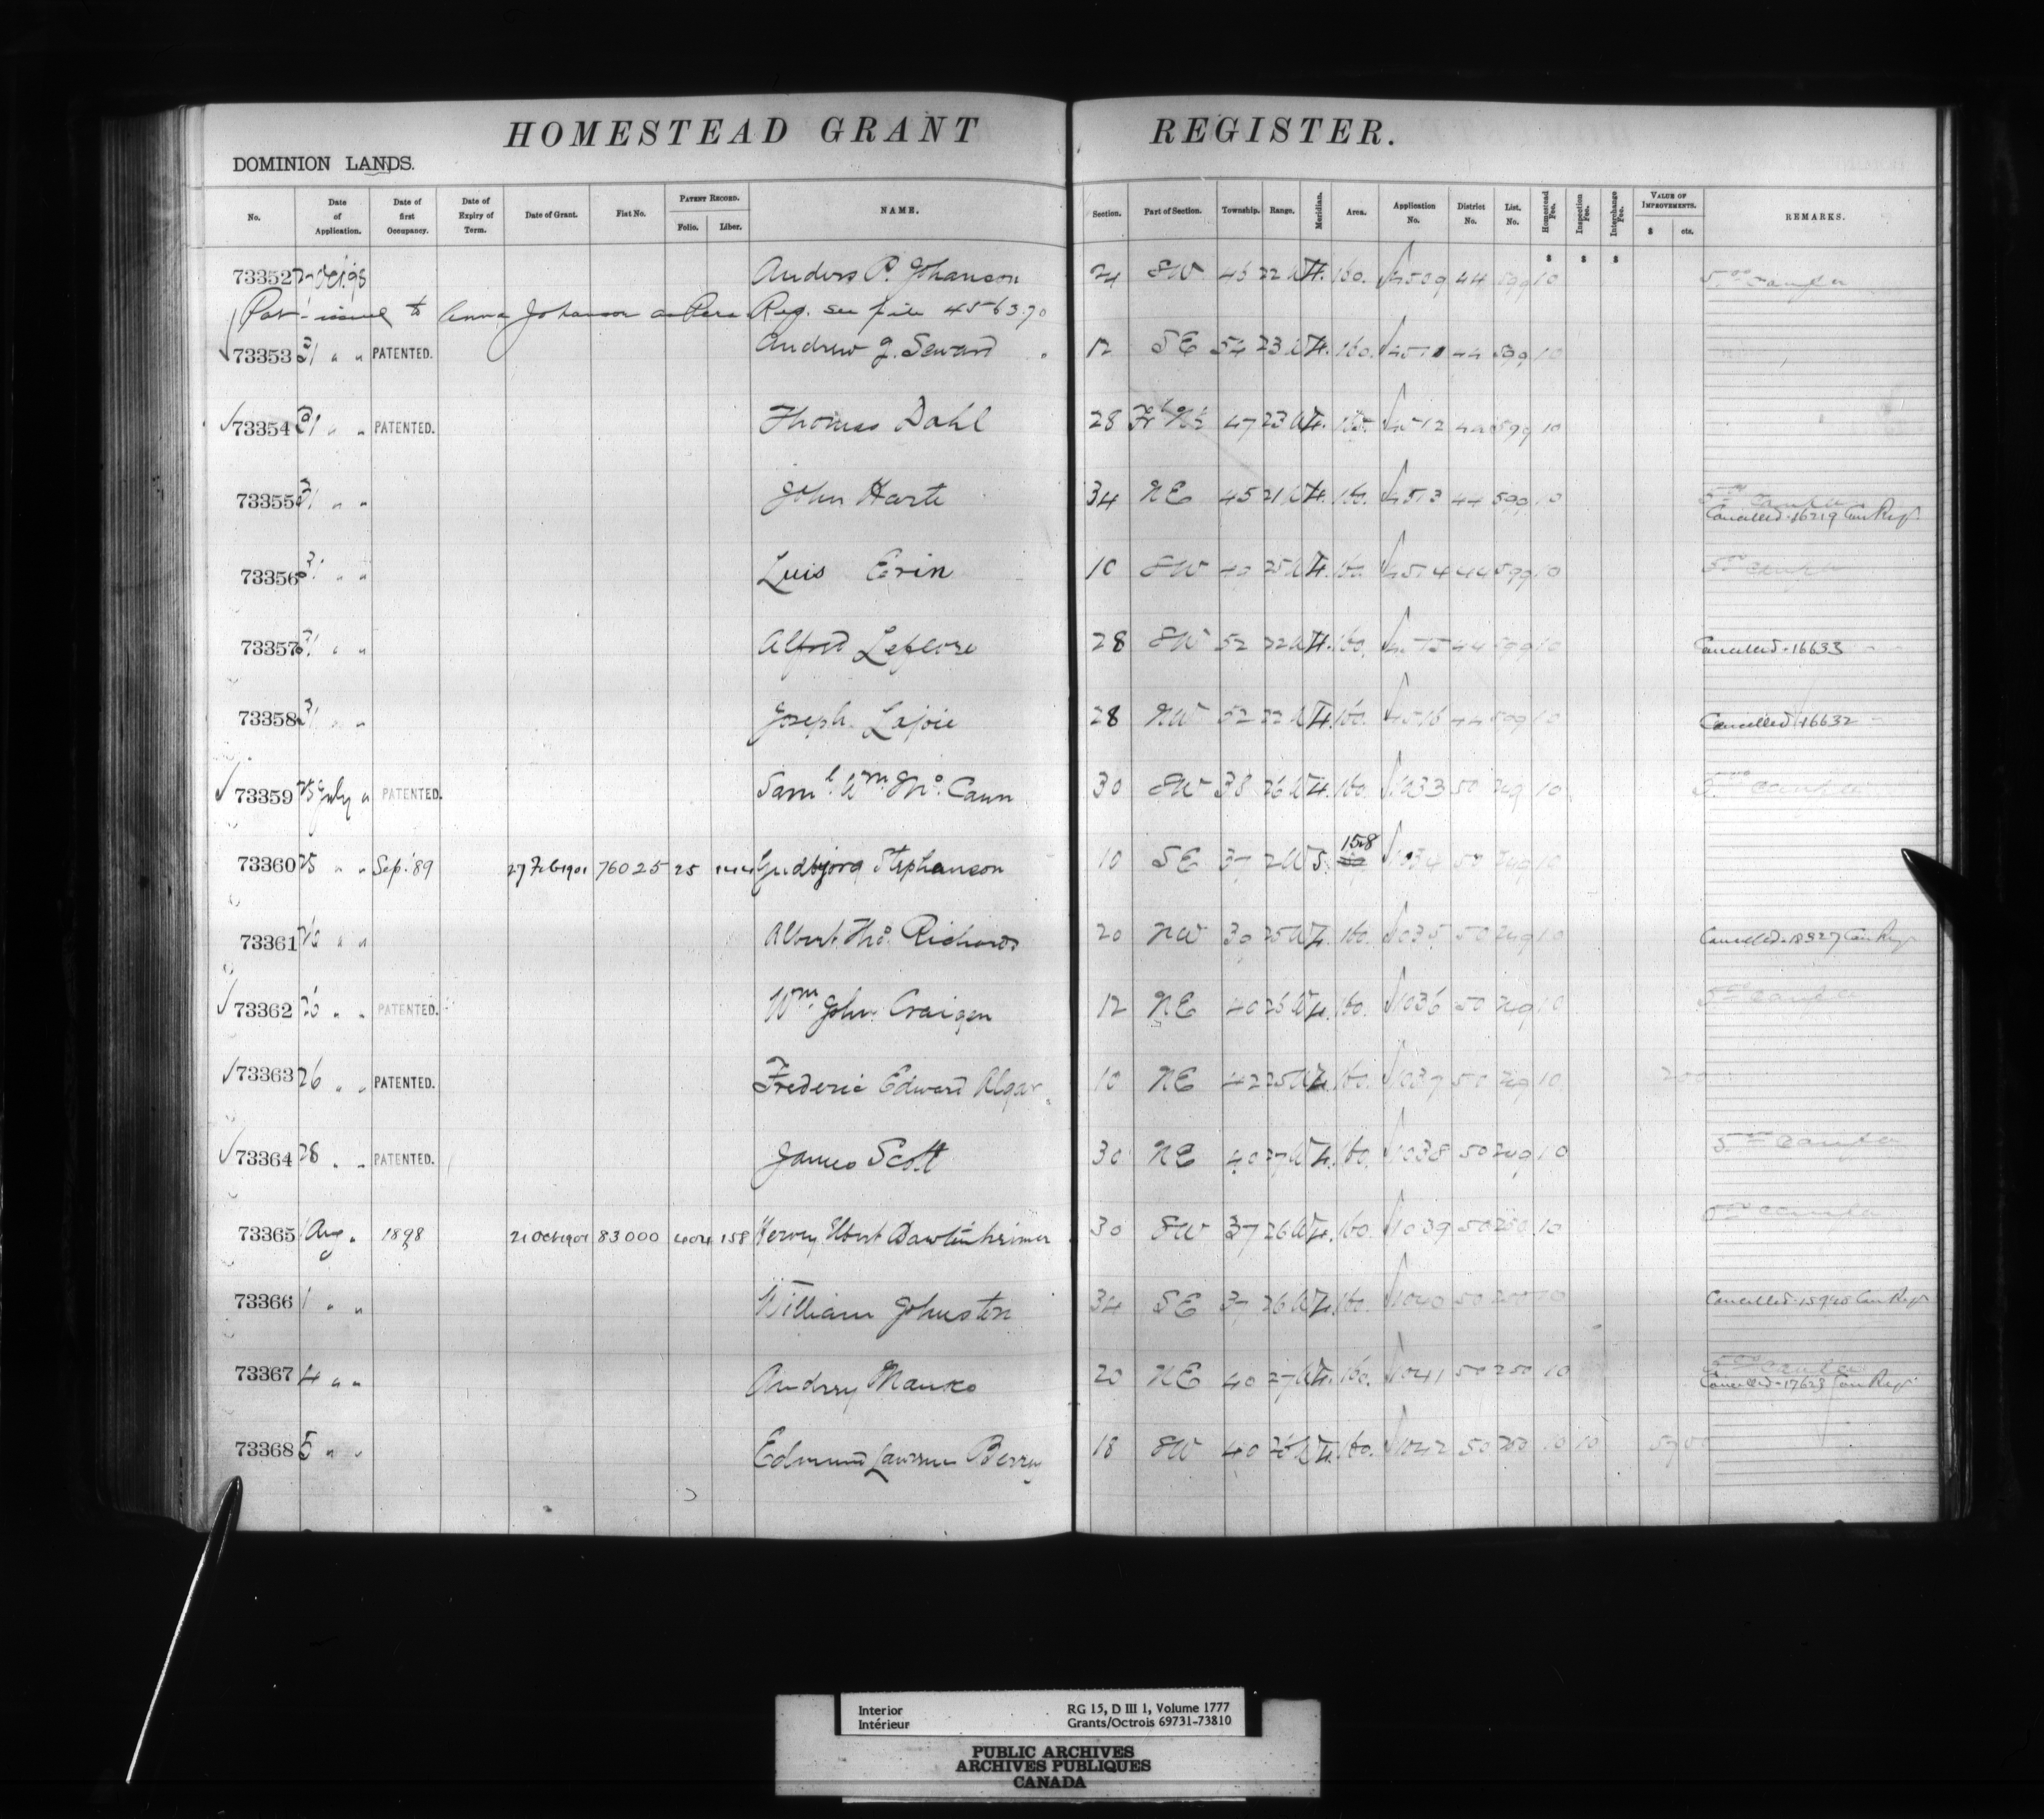 HOMESTEAD GRANT REGISTER.
DOMINION LANDS.
No. Date of Application. Date of first Occupancy. Date of Expiry of Term. Date of Grant. Fiat No. PATENT RECORD. Folio. Liber. NAME. Section. Part of Section. Township. Range. Meridian. Area. Application No. District No. List. No. Homestead Fee. Inspection Fee. Interchange Fee. VALUE OF IMPROVEMENTS. $ cts. REMARKS.
$ $ $
73352 Anders P. Johanson 24 SW 46 22 W 4. 160. 4509 44 599 10
Pat. issued to Anna Johanson as Pers. Reg. see file 456370
73353 31 " " PATENTED. Andrew J. Seward 12 SE 54 23 W 4. 160. 44 599 10
73354 31 " " PATENTED. Thomas Dahl 28 Frl N½ 47 23 W 4. 4512 44 599 10
73355 31 " " John Harte 34 NE 45 21 W 4. 160. 4513 44 599 10 Cancelled. 16219 Can Regr
73356 31 " " Luis Erin 10 SW 25 W 4. 160. 4514 44 599 10
73357 31 " " Alfred Lefevre 28 SW 52 22 W 4. 160. 4515 44 599 10 Cancelled. 16633
73358 31 " " Joseph Lajoie 28 NW 52 22 W 4. 160. 4516 44 599 10 Cancelled. 16632
73359 25 July " PATENTED. Saml. Wm. Mc. Cann 30 SW 38 26 W 4. 160. 1033 50 249 10
73360 25 " " Sep. '89 27 Feb 1901 76025 25 144 Gudbjorg Stephanson 10 SE 37 2 W 5. 158 1034 50 249 10
73361 26 " " Albert Thos. Richards 20 NW 39 25 W 4. 160. 1035 50 249 10 Cancelled. 18327 Can Regr
73362 26 " " PATENTED. Wm. John Craigen 12 NE 40 26 W 4. 160. 1036 50 249 10
73363 26 " " PATENTED. Frederic Edward Algar 10 NE 42 25 W 4. 160. 1037 50 249 10 200
73364 28 " " PATENTED. James Scott 30 NE 40 27 W 4. 160. 1038 50 249 10
73365 1 Aug " 1898 21 Oct 1901 83000 404 158 30 SW 37 26 W 4. 160. 1039 50 250 10
73366 1 " " William Johnston 34 SE 37 26 W 4. 160. 1040 50 250 10 Cancelled. Can Regr
73367 4 " " Andrey Manko 20 NE 40 27 W 4. 160. 1041 50 250 10 Cancelled. 17623 Can Regr
73368 5 " " Edmund Lawrence Berry 18 SW 40 26 W 4. 160. 1042 50 250 10 10
Interior RG 15, D III 1, Volume 1777
Intérieur Grants/Octrois 69731-73810
PUBLIC ARCHIVES
ARCHIVES PUBLIQUES
CANADA